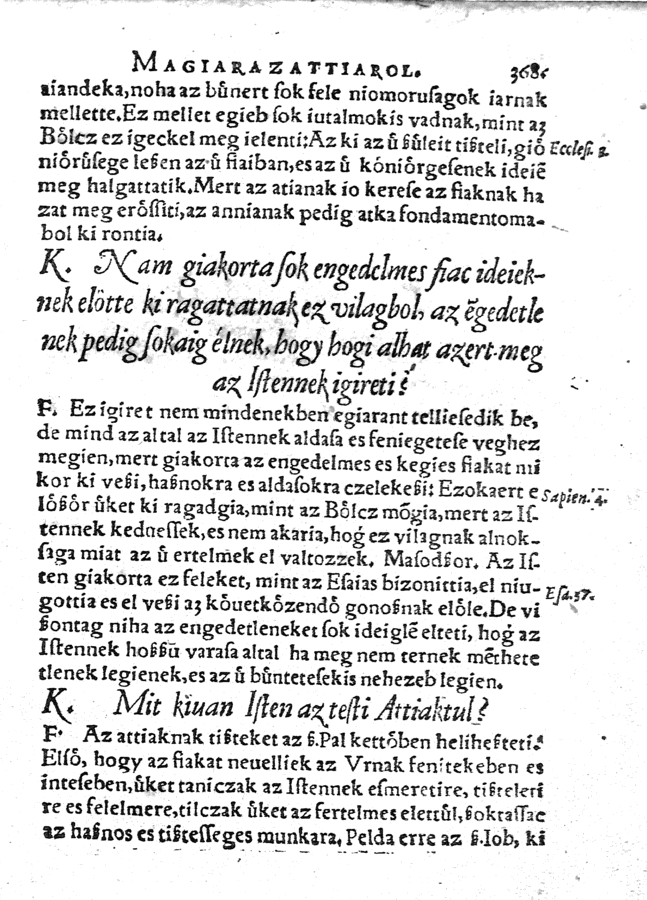 MAGIARAZATTIAROL. 368.
aiandeka, noha az bůnert ſok fele niomoruſagok iarnak
mellette. Ez mellet egieb ſok iutalmokis vadnak, mint aʒ
Bǒlcz ez igeckel meg ielenti: Az ki az ů ßůleit tißteli, giǒ Eccleſi. 3.
niǒrůſege leßen az ů fiaiban, es az ů kóniǒrgeſenek ideiē
meg halgattatik. Mert az atianak io kereſe az fiaknak ha
zat meg erǒſſiti, az annianak pedig atka fondamentoma-
bol ki rontia.
K. Nam giakorta ſok engedelmes fiac ideiek-
nek elǒtte ki ragattatnak ez vilagbol, az ēgedetle
nek pedig ſokaig élnek, hogy hogi alhat azert meg
az Iſtennek igireti?
F. Ez igiret nem mindenekben egiarant tellieſedik be,
de mind az altal az Iſtennek aldaſa es feniegeteſe veghez
megien, mert giakorta az engedelmes es kegies fiakat mi
kor ki veßi, haßnokra es aldaſokra czelekeßi: Ezokaert e Sapien. 4.
lǒßǒr ůket ki ragadgia, mint az Bǒlcz mōgia, mert az Iſ-
tennek kedueſſek, es nem akaria, hoǵ ez vilagnak alnok-
ſaga miat az ů ertelmek el valtozzek. Maſodßor. Az Iſ-
ten giakorta ez feleket, mint az Eſaias bizonittia, el niu- Eſa. 57.
gottia es el veßi aʒ kǒuetkǒzendǒ gonoßnak elǒle. De vi
ßontag niha az engedetleneket ſok ideiglē elteti, hoǵ az
Iſtennek hoßßu varaſa altal ha meg nem ternek mēthete
tlenek legienek, es az ů bůnteteſekis nehezeb legien.
K. Mit kiuan Iſten az teſti Attiaktul?
F. Az attiaknak tißteket az ß. Pal kettǒben helihezteti.
Elſǒ, hogy az fiakat neuelliek az Vrnak fenitekeben es
inteſeben, ůket taniczak az Iſtennek eſmeretire, tißteleti
re es felelmere, tilczak ůket az fertelmes elettůl, ßoktaſſac
az haßnos es tißteſſeges munkara. Pelda erre az ß. Iob, ki